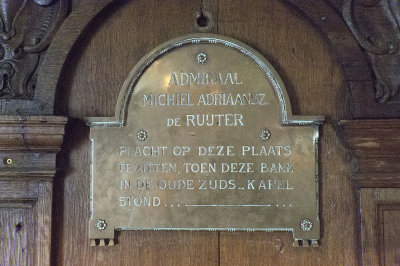 ADMIRAAL
MICHIEL ADRIAANSZ.
DE RUIJTER
PLACHT OP DEZE PLAATS
TE ZITTEN, TOEN DEZE BANK
IN DE OUDE ZUDS-KAPEL
STOND